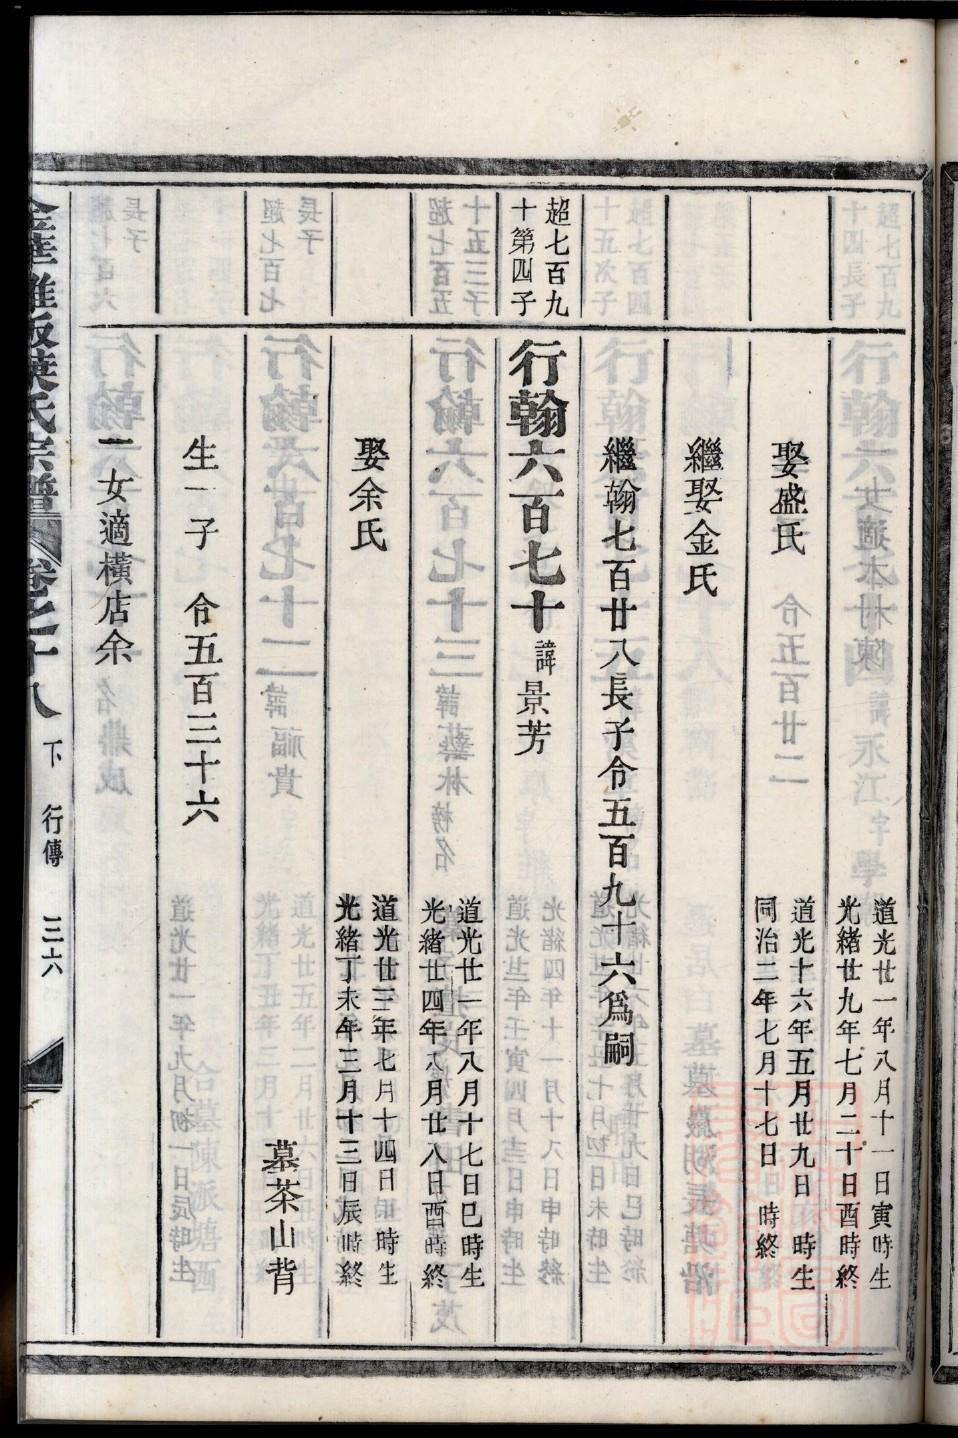 道光廿一年八月十一日寅時生
光緒廿九年七月二十日酉時終
娶盛氏
道光十六年五月廿九日 時生
同治二年七月十七日 時終
繼娶金氏
繼翰七百廿八長子令五百九十六爲嗣
超七百九
十第四子
行翰六百七十 諱景芳
道光廿一年八月十七日巳時生
光緒廿四年八月廿八日酉時終
娶余氏
道光廿三年七月十四日 時生
光緒丁未年三月十三日辰時終
墓茶山背
生一子 令五百三十六
一女適橫店余
氏宗譜 卷之十八 下 行傳 三六